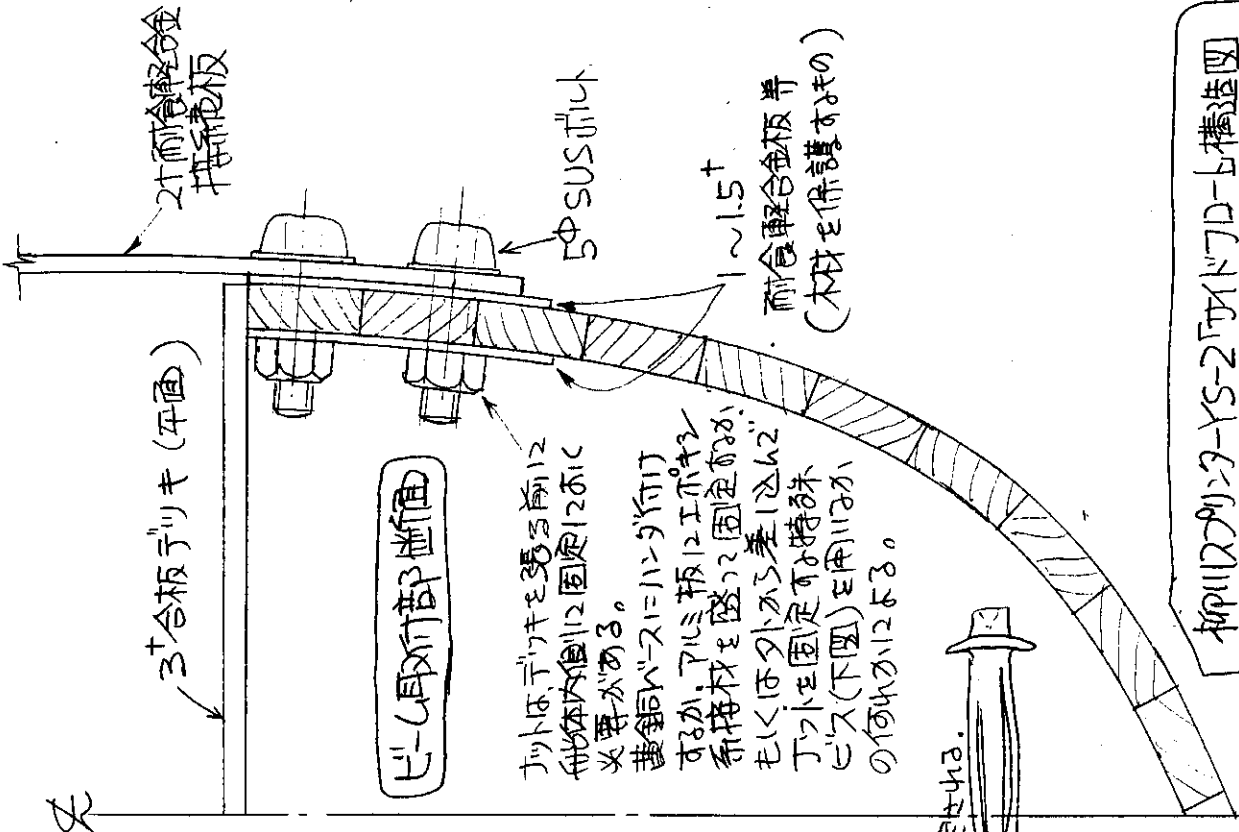 ℄
3ᵗ合板デッキ(平面)
2ᵗ耐食軽合金
5φ SUSボルト
1〜1.5ᵗ
耐食軽合金板等
(木材を保護するもの)
ビーム取付部断面
ナットは、デッキを張る前に
船体内側に固定しておく
必要がある。
黄銅ベースにハンダ付け
するか、アルミ板にエポキシ
系接着材を盛って固定するか、
もしくは外から差し込んで
ナットを固定する特殊
ビス(下図)を用いるか
の何れかによる。
される。
柳川スプリンターYS-2「サイドフロート構造図